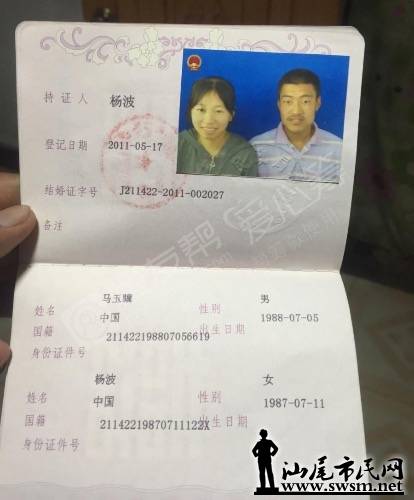 持证人 杨波
登记日期 2011-05-17
结婚证字号 J211422-2011-002027
备注
姓名 马玉骥 性别 男
国籍 中国 出生日期 1988-07-05
身份证件号 211422198807056619
姓名 杨波 性别 女
国籍 中国 出生日期 1987-07-11
身份证件号 21142219870711122X
汕尾市民网
www.swsm.net